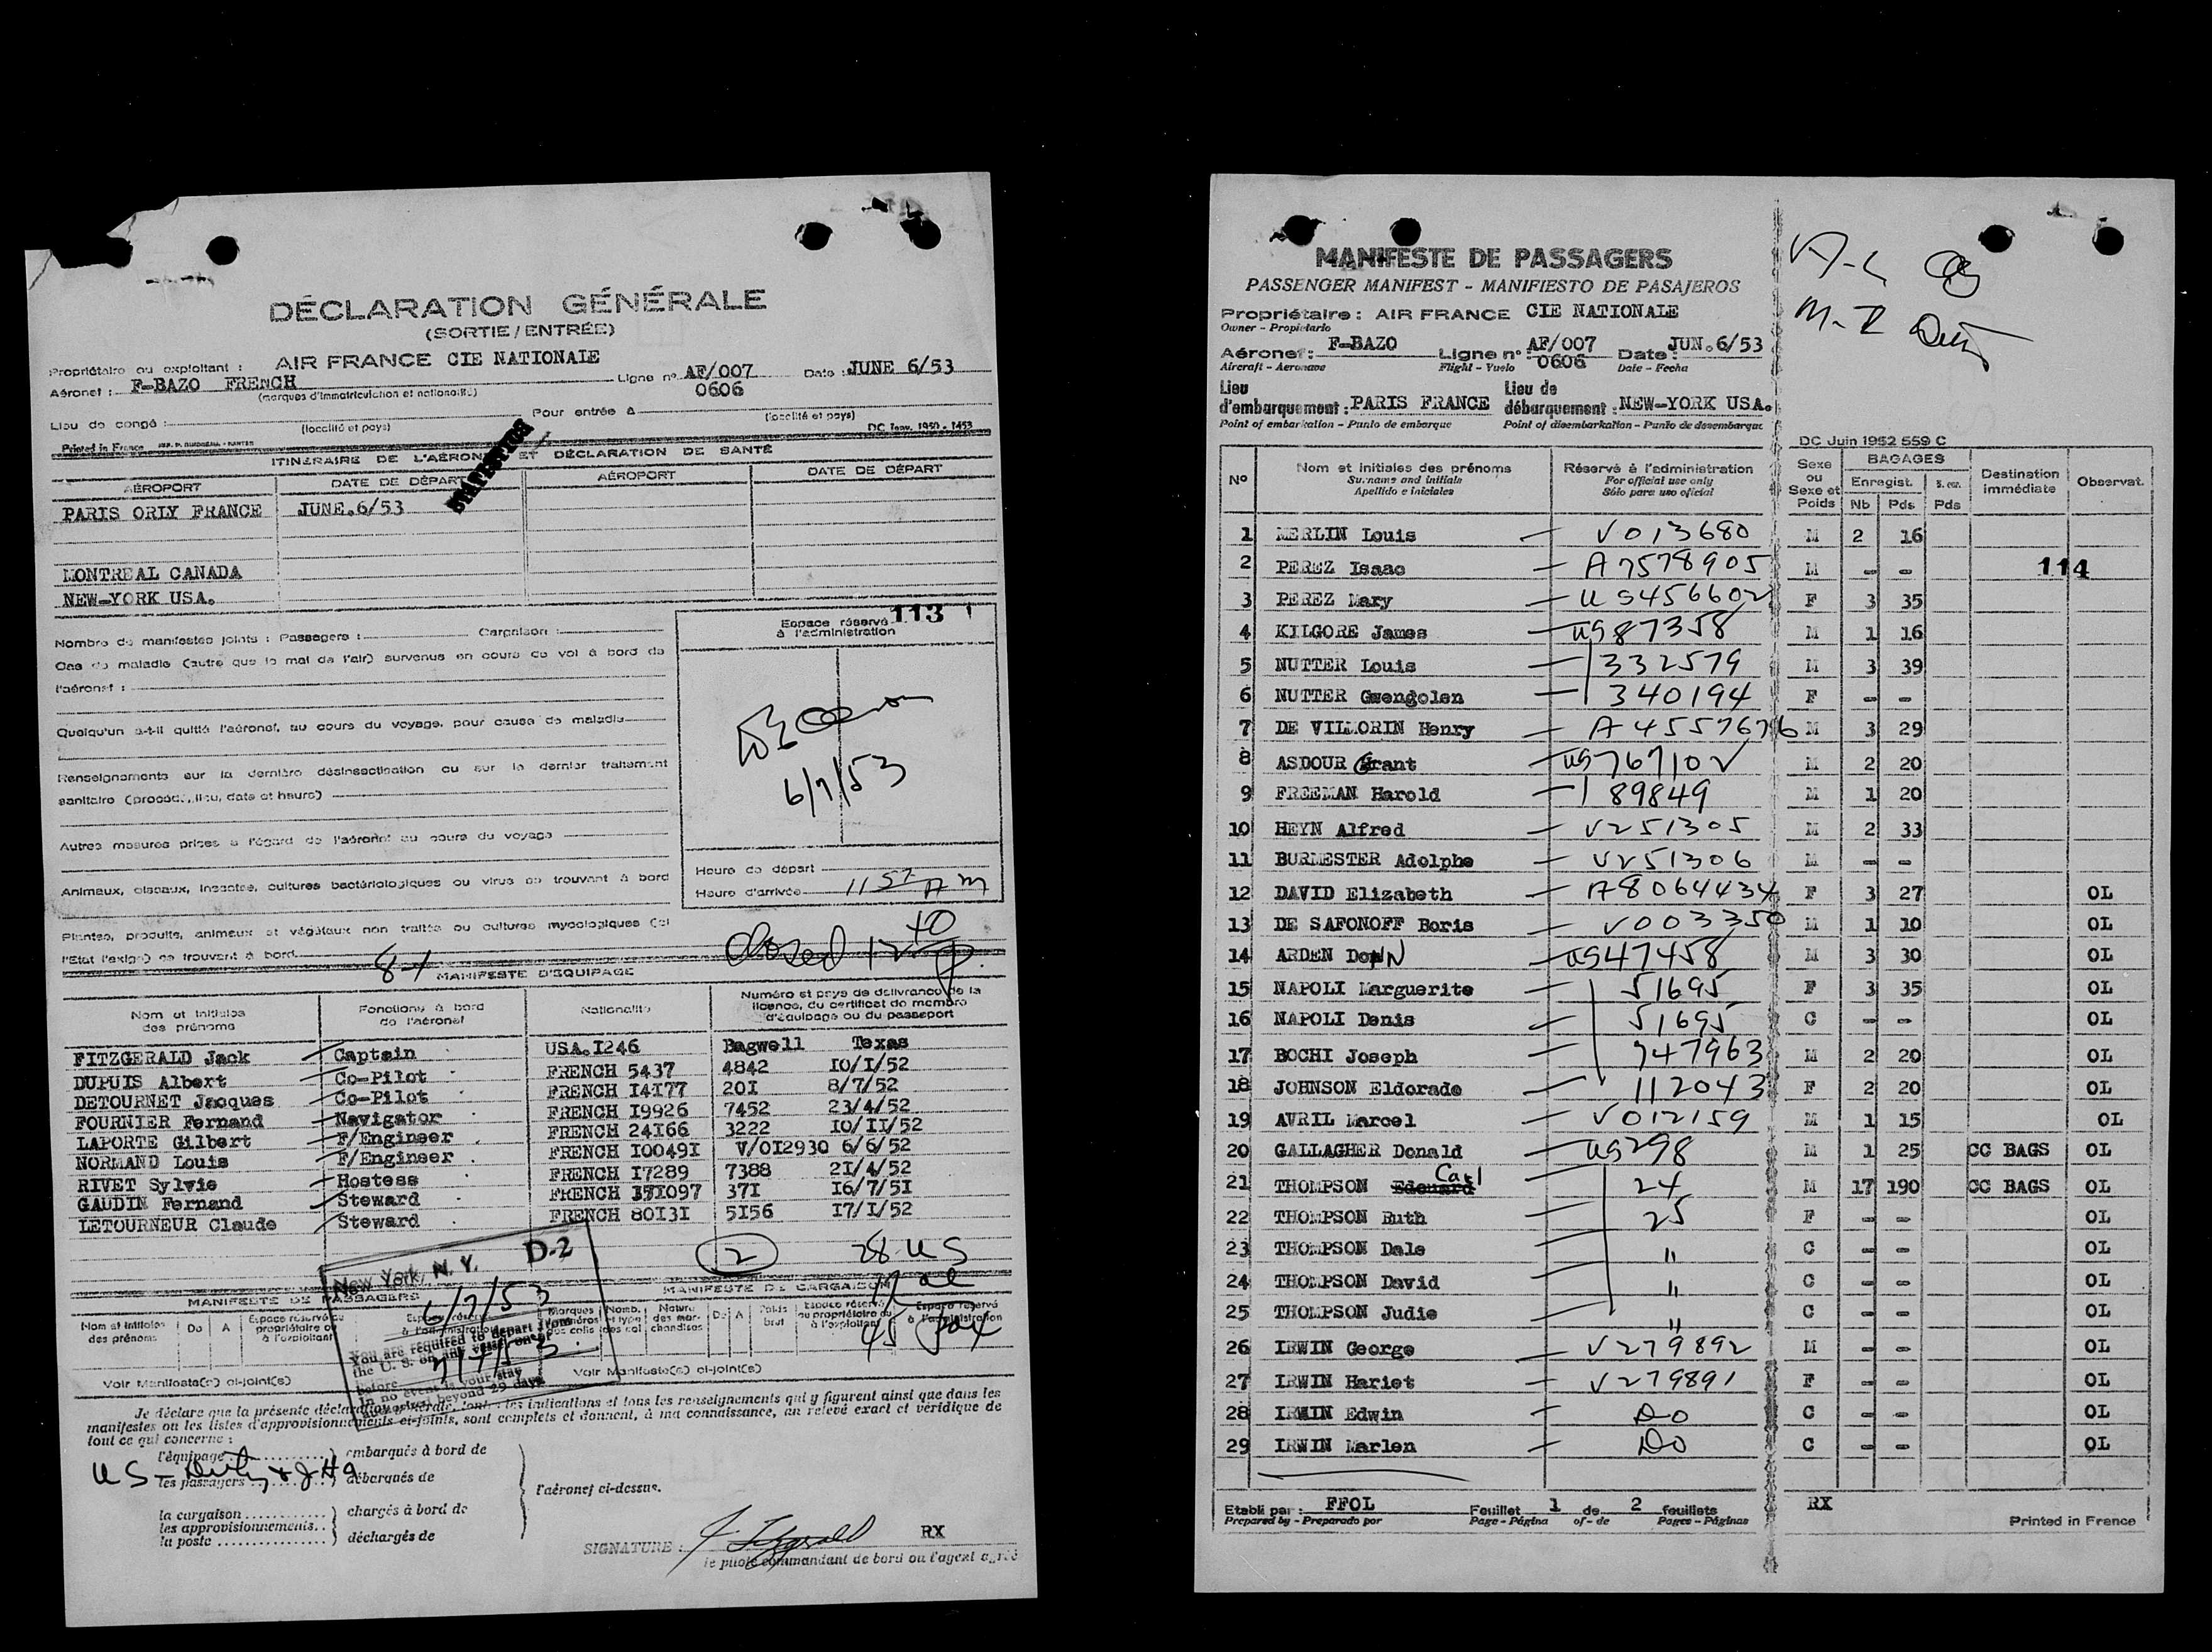 DÉCLARATION GÉNÉRALE
(SORTIE / ENTRÉE)
Propriétaire ou exploitant : AIR FRANCE CIE NATIONALE
Aéronef : F-BAZO FRENCH Ligne nº AF/007 Date : JUNE 6/53
(marques d'immatriculation et nationalité) 0606
Lieu de congé : Pour entrée à
(localité et pays) (localité et pays)
Printed in France DC Janv. 1950 - 1453
ITINÉRAIRE DE L'AÉRONEF ET DÉCLARATION DE SANTÉ
AÉROPORT DATE DE DÉPART AÉROPORT DATE DE DÉPART
PARIS ORLY FRANCE JUNE.6/53
MONTREAL CANADA
NEW-YORK USA.
Nombre de manifestes joints : Passagers : Cargaison :
Cas de maladie (autre que le mal de l'air) survenus en cours de vol à bord de
l'aéronef :
Quelqu'un a-t-il quitté l'aéronef, au cours du voyage, pour cause de maladie
Renseignements sur la dernière désinsectisation ou sur le dernier traitement
sanitaire (procédé, lieu, date et heure)
Autres mesures prises à l'égard de l'aéronef au cours du voyage
Animaux, oiseaux, insectes, cultures bactériologiques ou virus se trouvant à bord
Plantes, produits, animaux et végétaux non traités ou cultures mycologiques (si
l'Etat l'exige) se trouvant à bord
Espace réservé 113
à l'administration
6/7/53
Heure de départ
Heure d'arrivée 11 57 AM
closed 12 40 P.
8-1
MANIFESTE D'ÉQUIPAGE
Nom et initiales des prénoms Fonctions à bord de l'aéronef Nationalité Numéro et pays de délivrance de la licence, du certificat de membre d'équipage ou du passeport
FITZGERALD Jack Captain USA.I246 Bagwell Texas
DUPUIS Albert Co-Pilot FRENCH 5437 4842 IO/I/52
DETOURNET Jacques Co-Pilot FRENCH I4I77 20I 8/7/52
FOURNIER Fernand Navigator FRENCH I9926 7452 23/4/52
LAPORTE Gilbert F/Engineer FRENCH 24I66 3222 IO/II/52
NORMAND Louis F/Engineer FRENCH I0049I V/OI2930 6/6/52
RIVET Sylvie Hostess FRENCH I7289 7388 2I/4/52
GAUDIN Fernand Steward FRENCH 371097 37I I6/7/5I
LETOURNEUR Claude Steward FRENCH 80I3I 5I56 I7/I/52
2 28 US
17 al
45 pax
New York, N. Y. D-2
6/7/53
You are required to depart from
the U. S. on any vessel or
before
in no event is your stay
authorized beyond 29 days
MANIFESTE DE PASSAGERS MANIFESTE DE CARGAISON
Nom et initiales des prénoms De A Espace réservé au propriétaire ou à l'exploitant
Marques numéros des colis Nomb. et type des col Nature des marchandises De A Poids brut Espace réservé au propriétaire ou à l'exploitant Espace réservé à l'administration
Voir Manifeste(s) ci-joint(s) Voir Manifeste(s) ci-joint(s)
Je déclare que la présente déclaration générale, toutes les indications et tous les renseignements qui y figurent ainsi que dans les
manifestes ou les listes d'approvisionnements ci-joints, sont complets et donnent, à ma connaissance, un relevé exact et véridique de
tout ce qui concerne :
l'équipage embarqués à bord de
les passagers débarqués de
l'aéronef ci-dessus.
la cargaison chargés à bord de
les approvisionnements
la poste déchargés de
SIGNATURE : J. Fitzgerald RX
le pilote commandant de bord ou l'agent agréé
MANIFESTE DE PASSAGERS
PASSENGER MANIFEST - MANIFIESTO DE PASAJEROS
Propriétaire : AIR FRANCE CIE NATIONALE
Owner - Propietario
Aéronef : F-BAZO Ligne nº AF/007 Date : JUN.6/53
Aircraft - Aeronave Flight - Vuelo 0606 Date - Fecha
Lieu d'embarquement : PARIS FRANCE Lieu de débarquement : NEW-YORK USA.
Point of embarkation - Punto de embarque Point of disembarkation - Punto de desembarque
DC Juin 1952 559 C
Nº Nom et initiales des prénoms Surname and initials Apellido e iniciales
Réservé à l'administration For official use only Sólo para uso oficial
Sexe ou Sexe et Poids BAGAGES Enregist. Nb Pds Pds Destination immédiate Observat.
1 MERLIN Louis V013680 M 2 16
2 PEREZ Isaac A7578905 M - - 114
3 PEREZ Mary US456602 F 3 35
4 KILGORE James US87358 M 1 16
5 NUTTER Louis 332579 M 3 39
6 NUTTER Gwengolen 340194 F - -
7 DE VILMORIN Henry A4557676 M 3 29
8 ASDOUR Grant US767102 M 2 20
9 FREEMAN Harold 89849 M 1 20
10 HEYN Alfred V251305 M 2 33
11 BURMESTER Adolphe V251306 M - -
12 DAVID Elizabeth A8064434 F 3 27 OL
13 DE SAFONOFF Boris V003350 M 1 10 OL
14 ARDEN DoNN US47458 M 3 30 OL
15 NAPOLI Marguerite 51695 F 3 35 OL
16 NAPOLI Denis 51695 C - - OL
17 BOCHI Joseph 747963 M 2 20 OL
18 JOHNSON Eldorade 112043 F 2 20 OL
19 AVRIL Marcel V012159 M 1 15 OL
20 GALLAGHER Donald US298 M 1 25 CC BAGS OL
21 THOMPSON Edouard Carl 24 M 17 190 CC BAGS OL
22 THOMPSON Ruth 25 F - - OL
23 THOMPSON Dale " C - - OL
24 THOMPSON David " C - - OL
25 THOMPSON Judie " C - - OL
26 IRWIN George V279892 M - - OL
27 IRWIN Hariet V279891 F - - OL
28 IRWIN Edwin Do C - - OL
29 IRWIN Marlen Do C - - OL
Etabli par : FFOL Feuillet 1 de 2 feuillets RX
Prepared by - Preparado por Page - Página of - de Pages - Páginas Printed in France